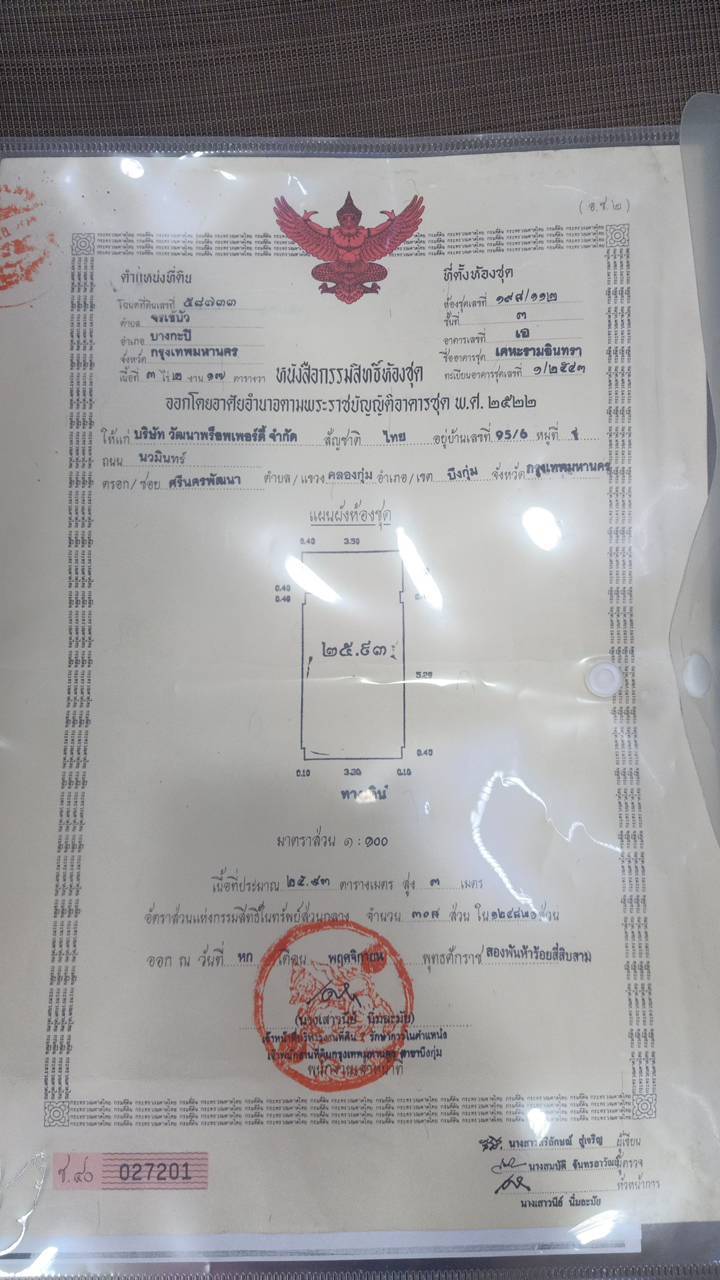 ( อ.ช.๒ )
ตำแหน่งที่ดิน
โฉนดที่ดินเลขที่ ๕๘๗๓๓
ตำบล จรเข้บัว
อำเภอ บางกะปิ
จังหวัด กรุงเทพมหานคร
เนื้อที่ ๓ ไร่ ๒ งาน ๑๗ ตารางวา
ที่ตั้งห้องชุด
ห้องชุดเลขที่ ๑๙๘/๑๑๒
ชั้นที่ ๓
อาคารเลขที่ เอ
ชื่ออาคารชุด เคหะรามอินทรา
ทะเบียนอาคารชุดเลขที่ ๑/๒๕๔๓
หนังสือกรรมสิทธิ์ห้องชุด
ออกโดยอาศัยอำนาจตามพระราชบัญญัติอาคารชุด พ.ศ. ๒๕๒๒
ให้แก่ บริษัท วัฒนาพร็อพเพอร์ตี้ จำกัด สัญชาติ ไทย อยู่บ้านเลขที่ 95/6 หมู่ที่
ถนน นวมินทร์
ตรอก/ซอย ศรีนครพัฒนา ตำบล/แขวง คลองกุ่ม อำเภอ/เขต บึงกุ่ม จังหวัด กรุงเทพมหานคร
แผนผังห้องชุด
0.40 3.50
0.40
0.40
๒๕.๙๓
5.20
0.40
0.10 3.30 0.10
ทางเดิน
มาตราส่วน ๑ : ๑๐๐
เนื้อที่ประมาณ ๒๕.๙๓ ตารางเมตร สูง ๓ เมตร
อัตราส่วนแห่งกรรมสิทธิ์ในทรัพย์ส่วนกลาง จำนวน ๓๐๘ ส่วน ใน ส่วน
ออก ณ วันที่ หก เดือน พฤศจิกายน พุทธศักราช สองพันห้าร้อยสี่สิบสาม
(นางเสาวนีย์ นิ่มนะมัย)
เจ้าหน้าที่บริหารงานที่ดิน รักษาการในตำแหน่ง
เจ้าพนักงานที่ดินกรุงเทพมหานคร สาขาบึงกุ่ม
พนักงานเจ้าหน้าที่
ผู้เขียน
นางสมบัติ ผู้ตรวจ
หัวหน้าการ
นางเสาวนีย์ นิ่มนะมัย
ช.๔๐ 027201